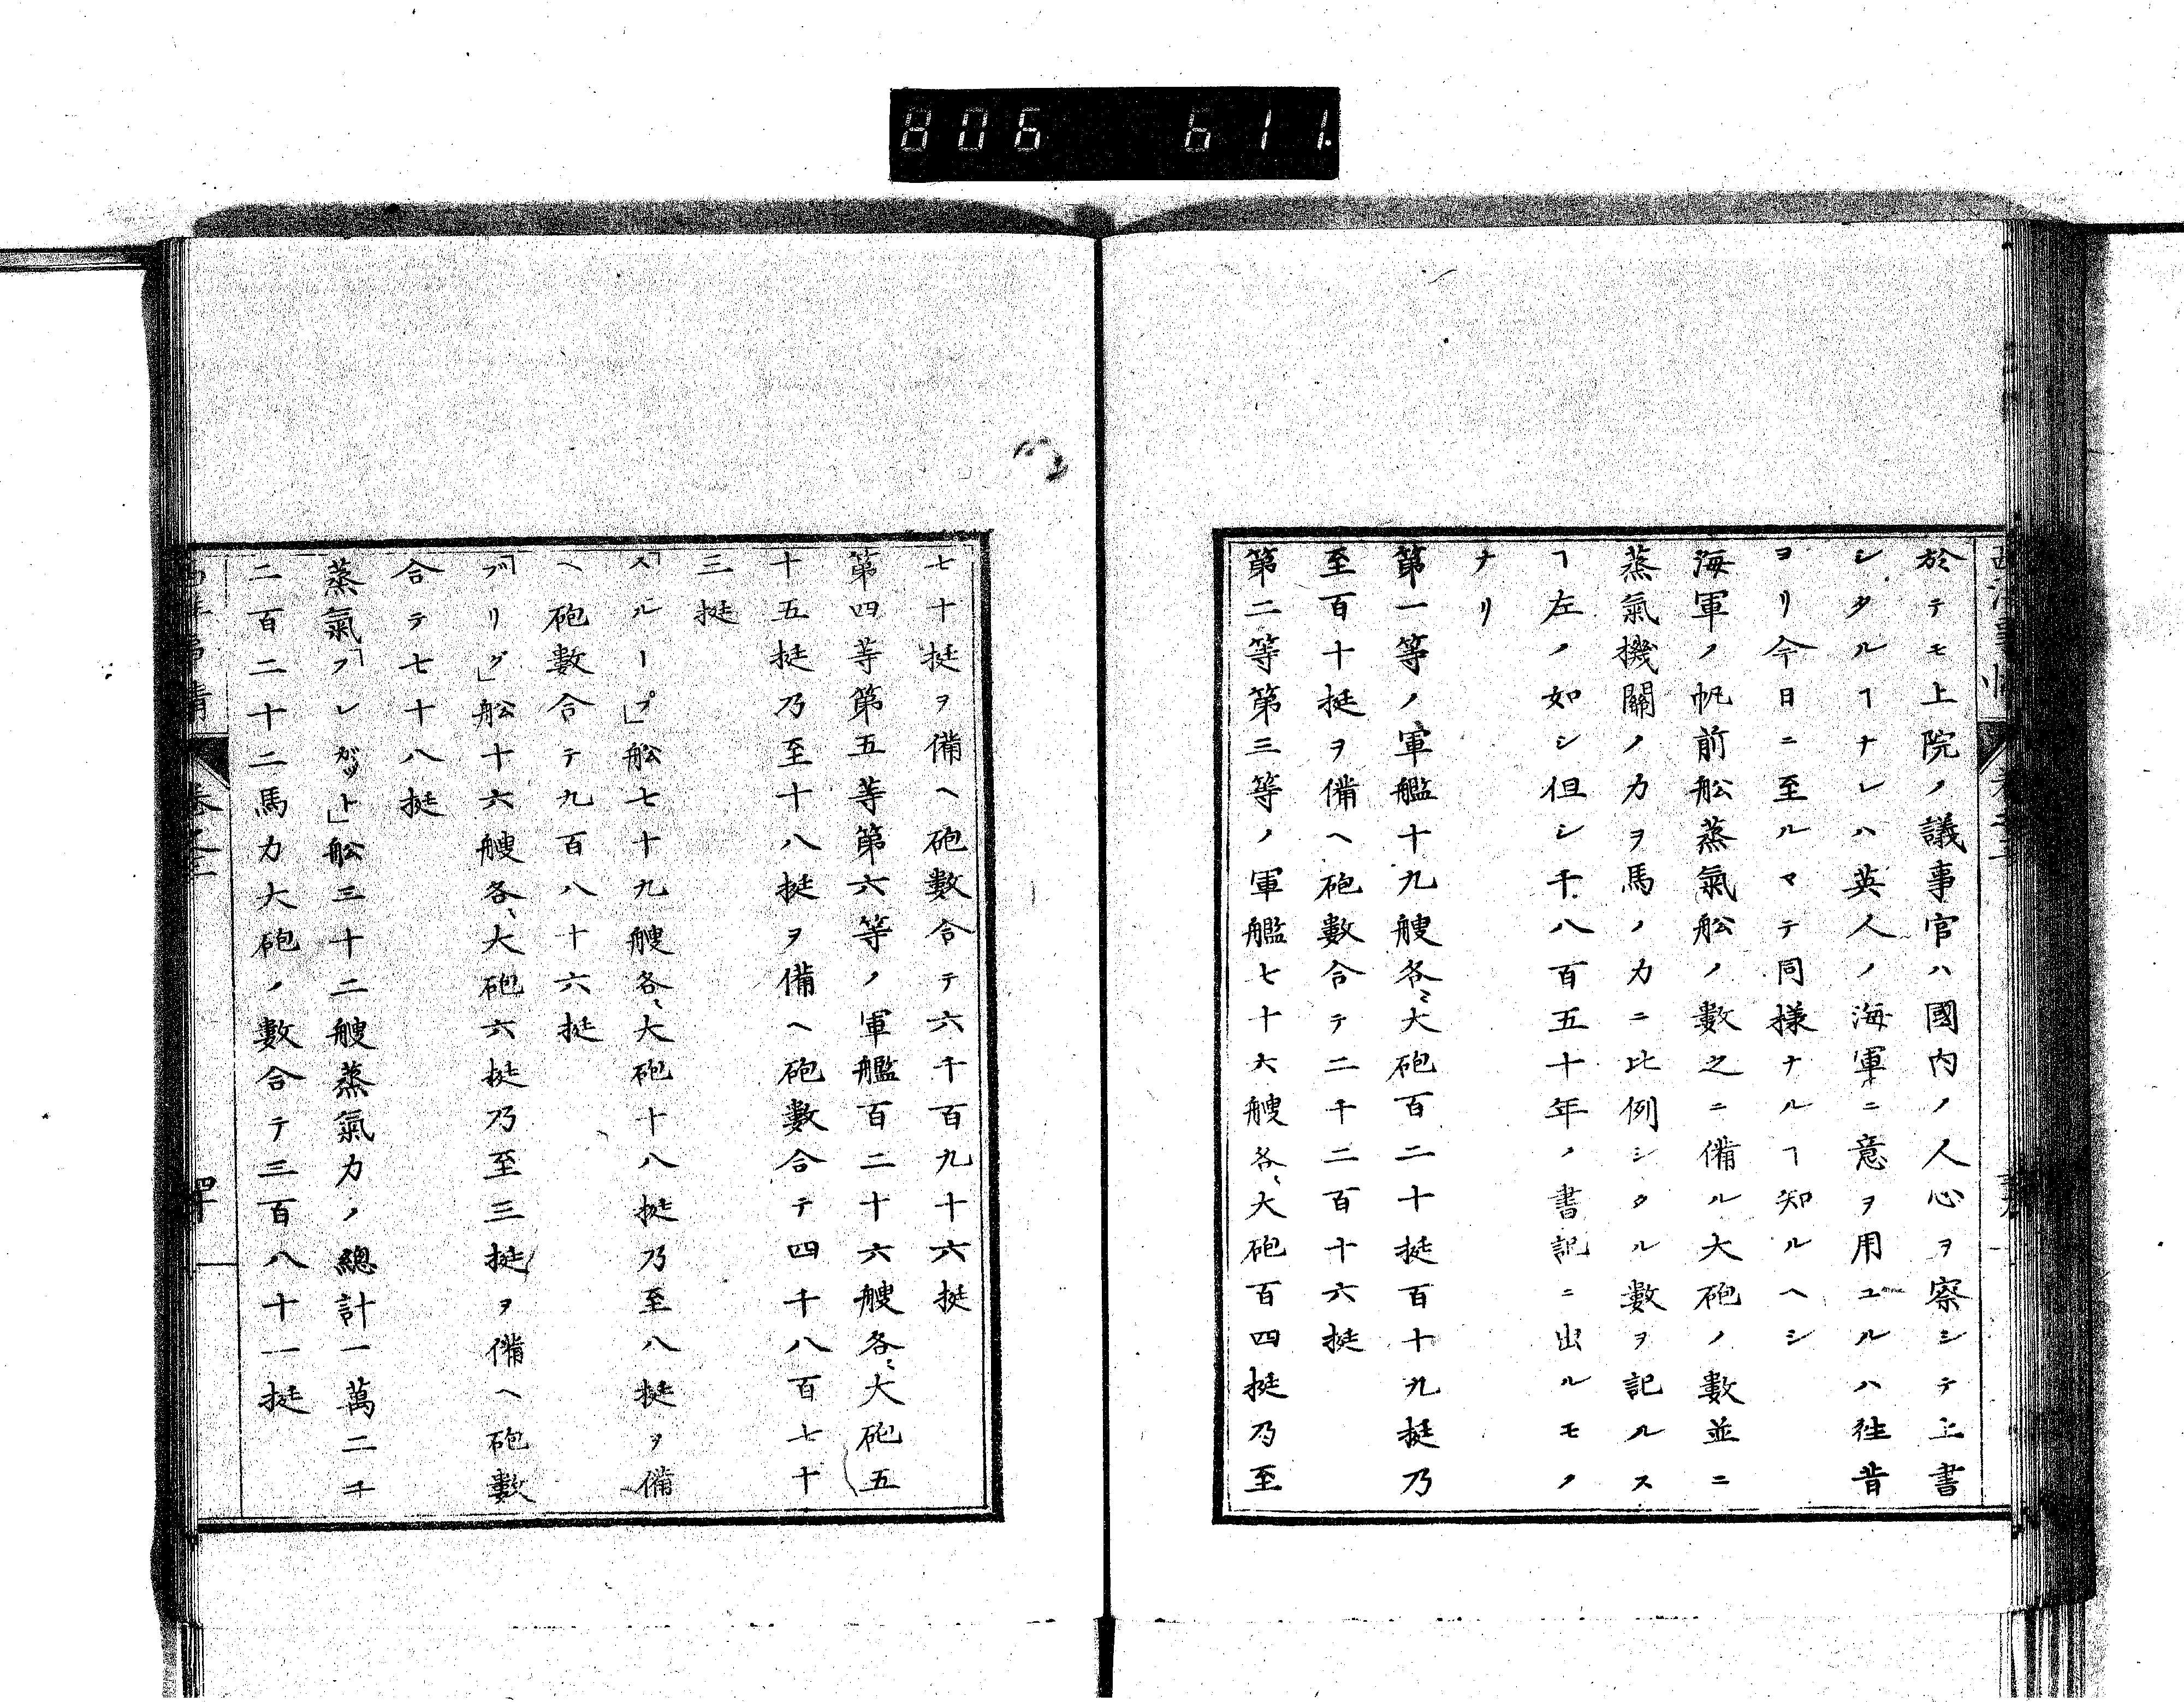 806 611.
於テモ上院ノ議事官ハ國内ノ人心ヲ察シテ上書
シタルヿナレハ英人ノ海軍ニ意ヲ用ユルハ往昔
ヨリ今日ニ至ルマテ同様ナルヿ知ルヘシ
海軍ノ帆前舩蒸氣舩ノ數之ニ備ル大砲ノ數並ニ
蒸氣機關ノ力ヲ馬ノ力ニ比例シタル數ヲ記ルス
ヿ左ノ如シ但シ千八百五十年ノ書記ニ出ルモノ
ナリ
第一等ノ軍艦十九艘各〻大砲百二十挺百十九挺乃
至百十挺ヲ備ヘ砲數合テ二千二百十六挺
第二等第三等ノ軍艦七十六艘各〻大砲百四挺乃至
七十挺ヲ備ヘ砲數合テ六千百九十六挺
第四等第五等第六等ノ軍艦百二十六艘各〻大砲五
十五挺乃至十八挺ヲ備ヘ砲數合テ四千八百七十
三挺
「スループ」舩七十九艘各〻大砲十八挺乃至八挺ヲ備
ヘ砲數合テ九百八十六挺
「ブリグ」舩十六艘各〻大砲六挺乃至三挺ヲ備ヘ砲數
合テ七十八挺
蒸氣「フレガット」舩三十二艘蒸氣力ノ總計一萬二千
二百二十二馬力大砲ノ數合テ三百八十一挺